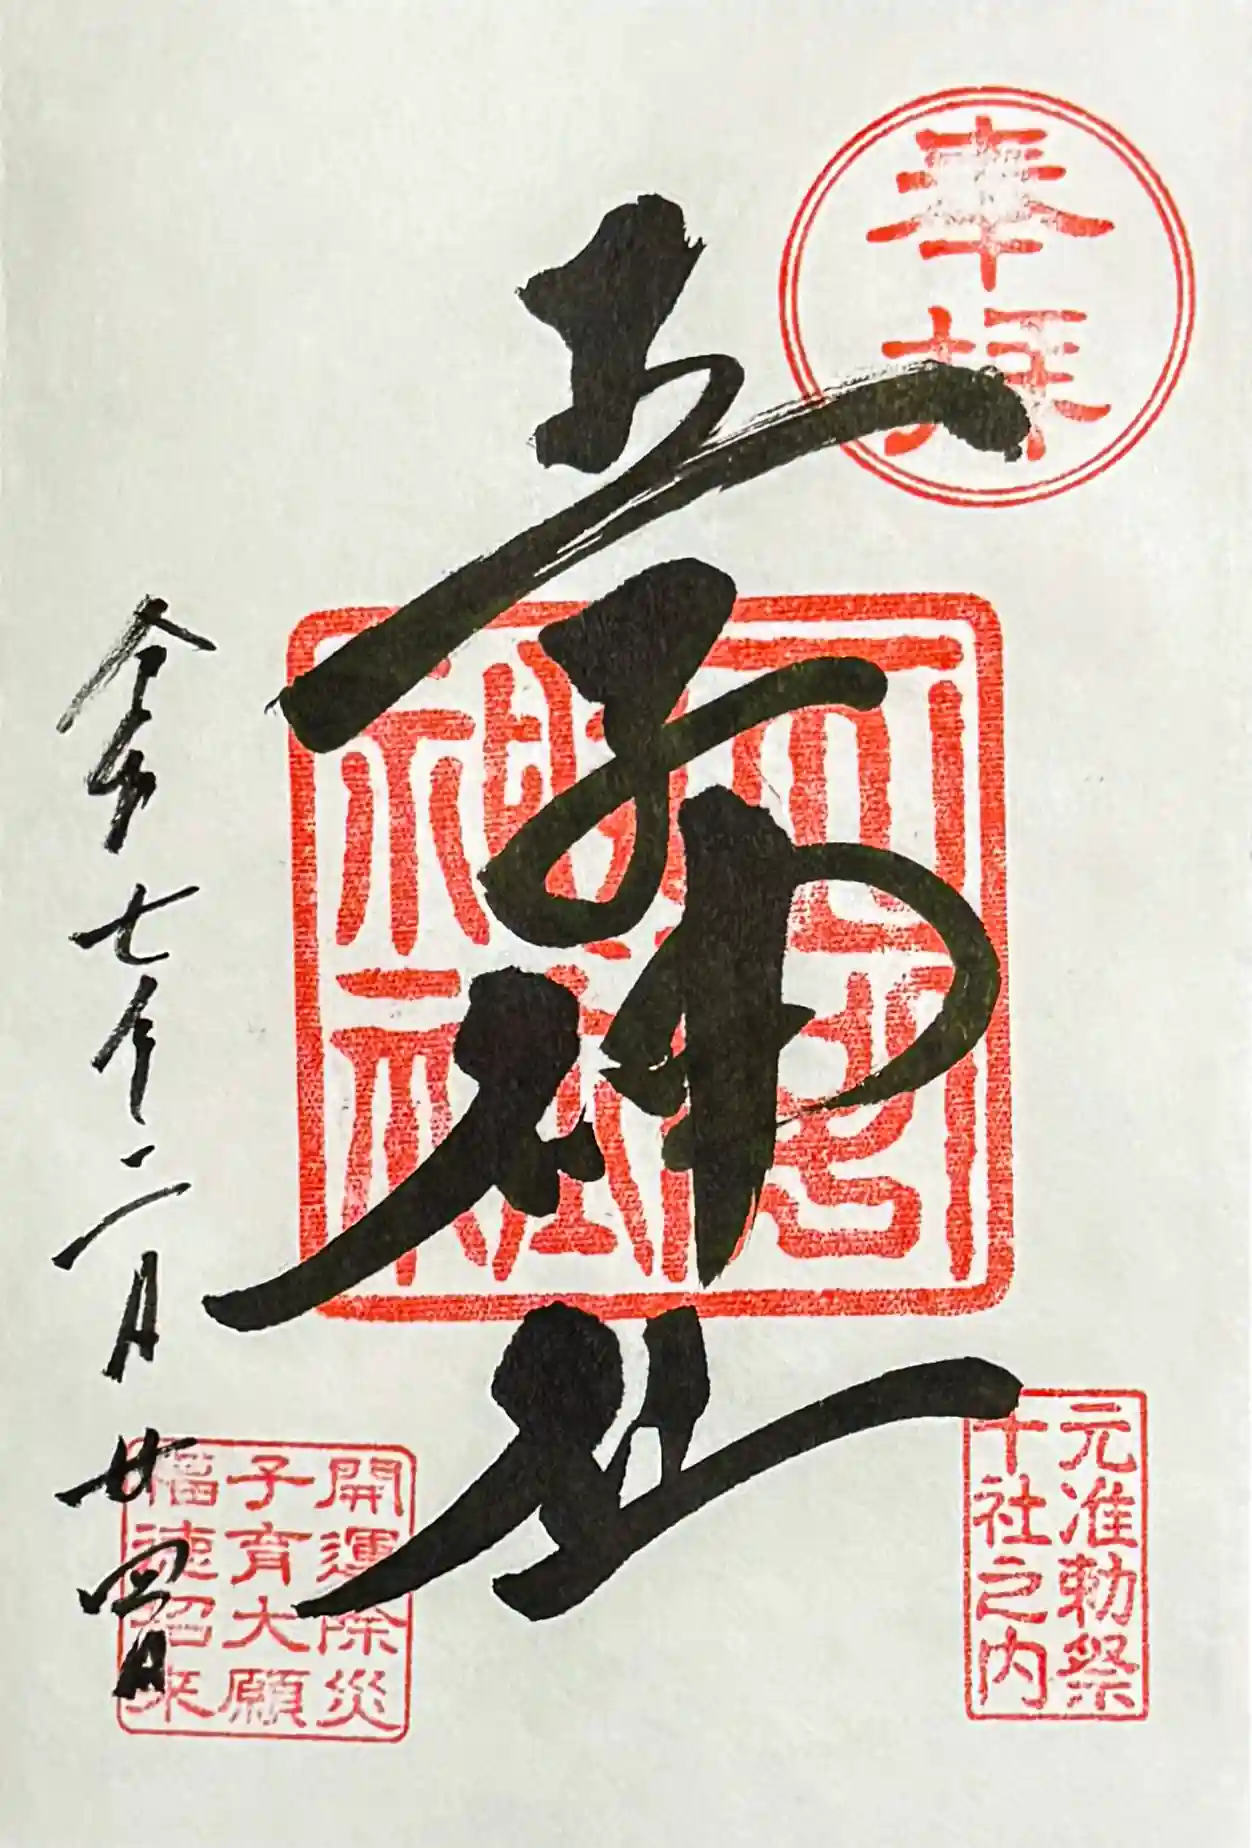 奉拝
元准勅祭
十社之内
王子神社
開運除災
子育大願
福徳招来
令和七年二月廿四日